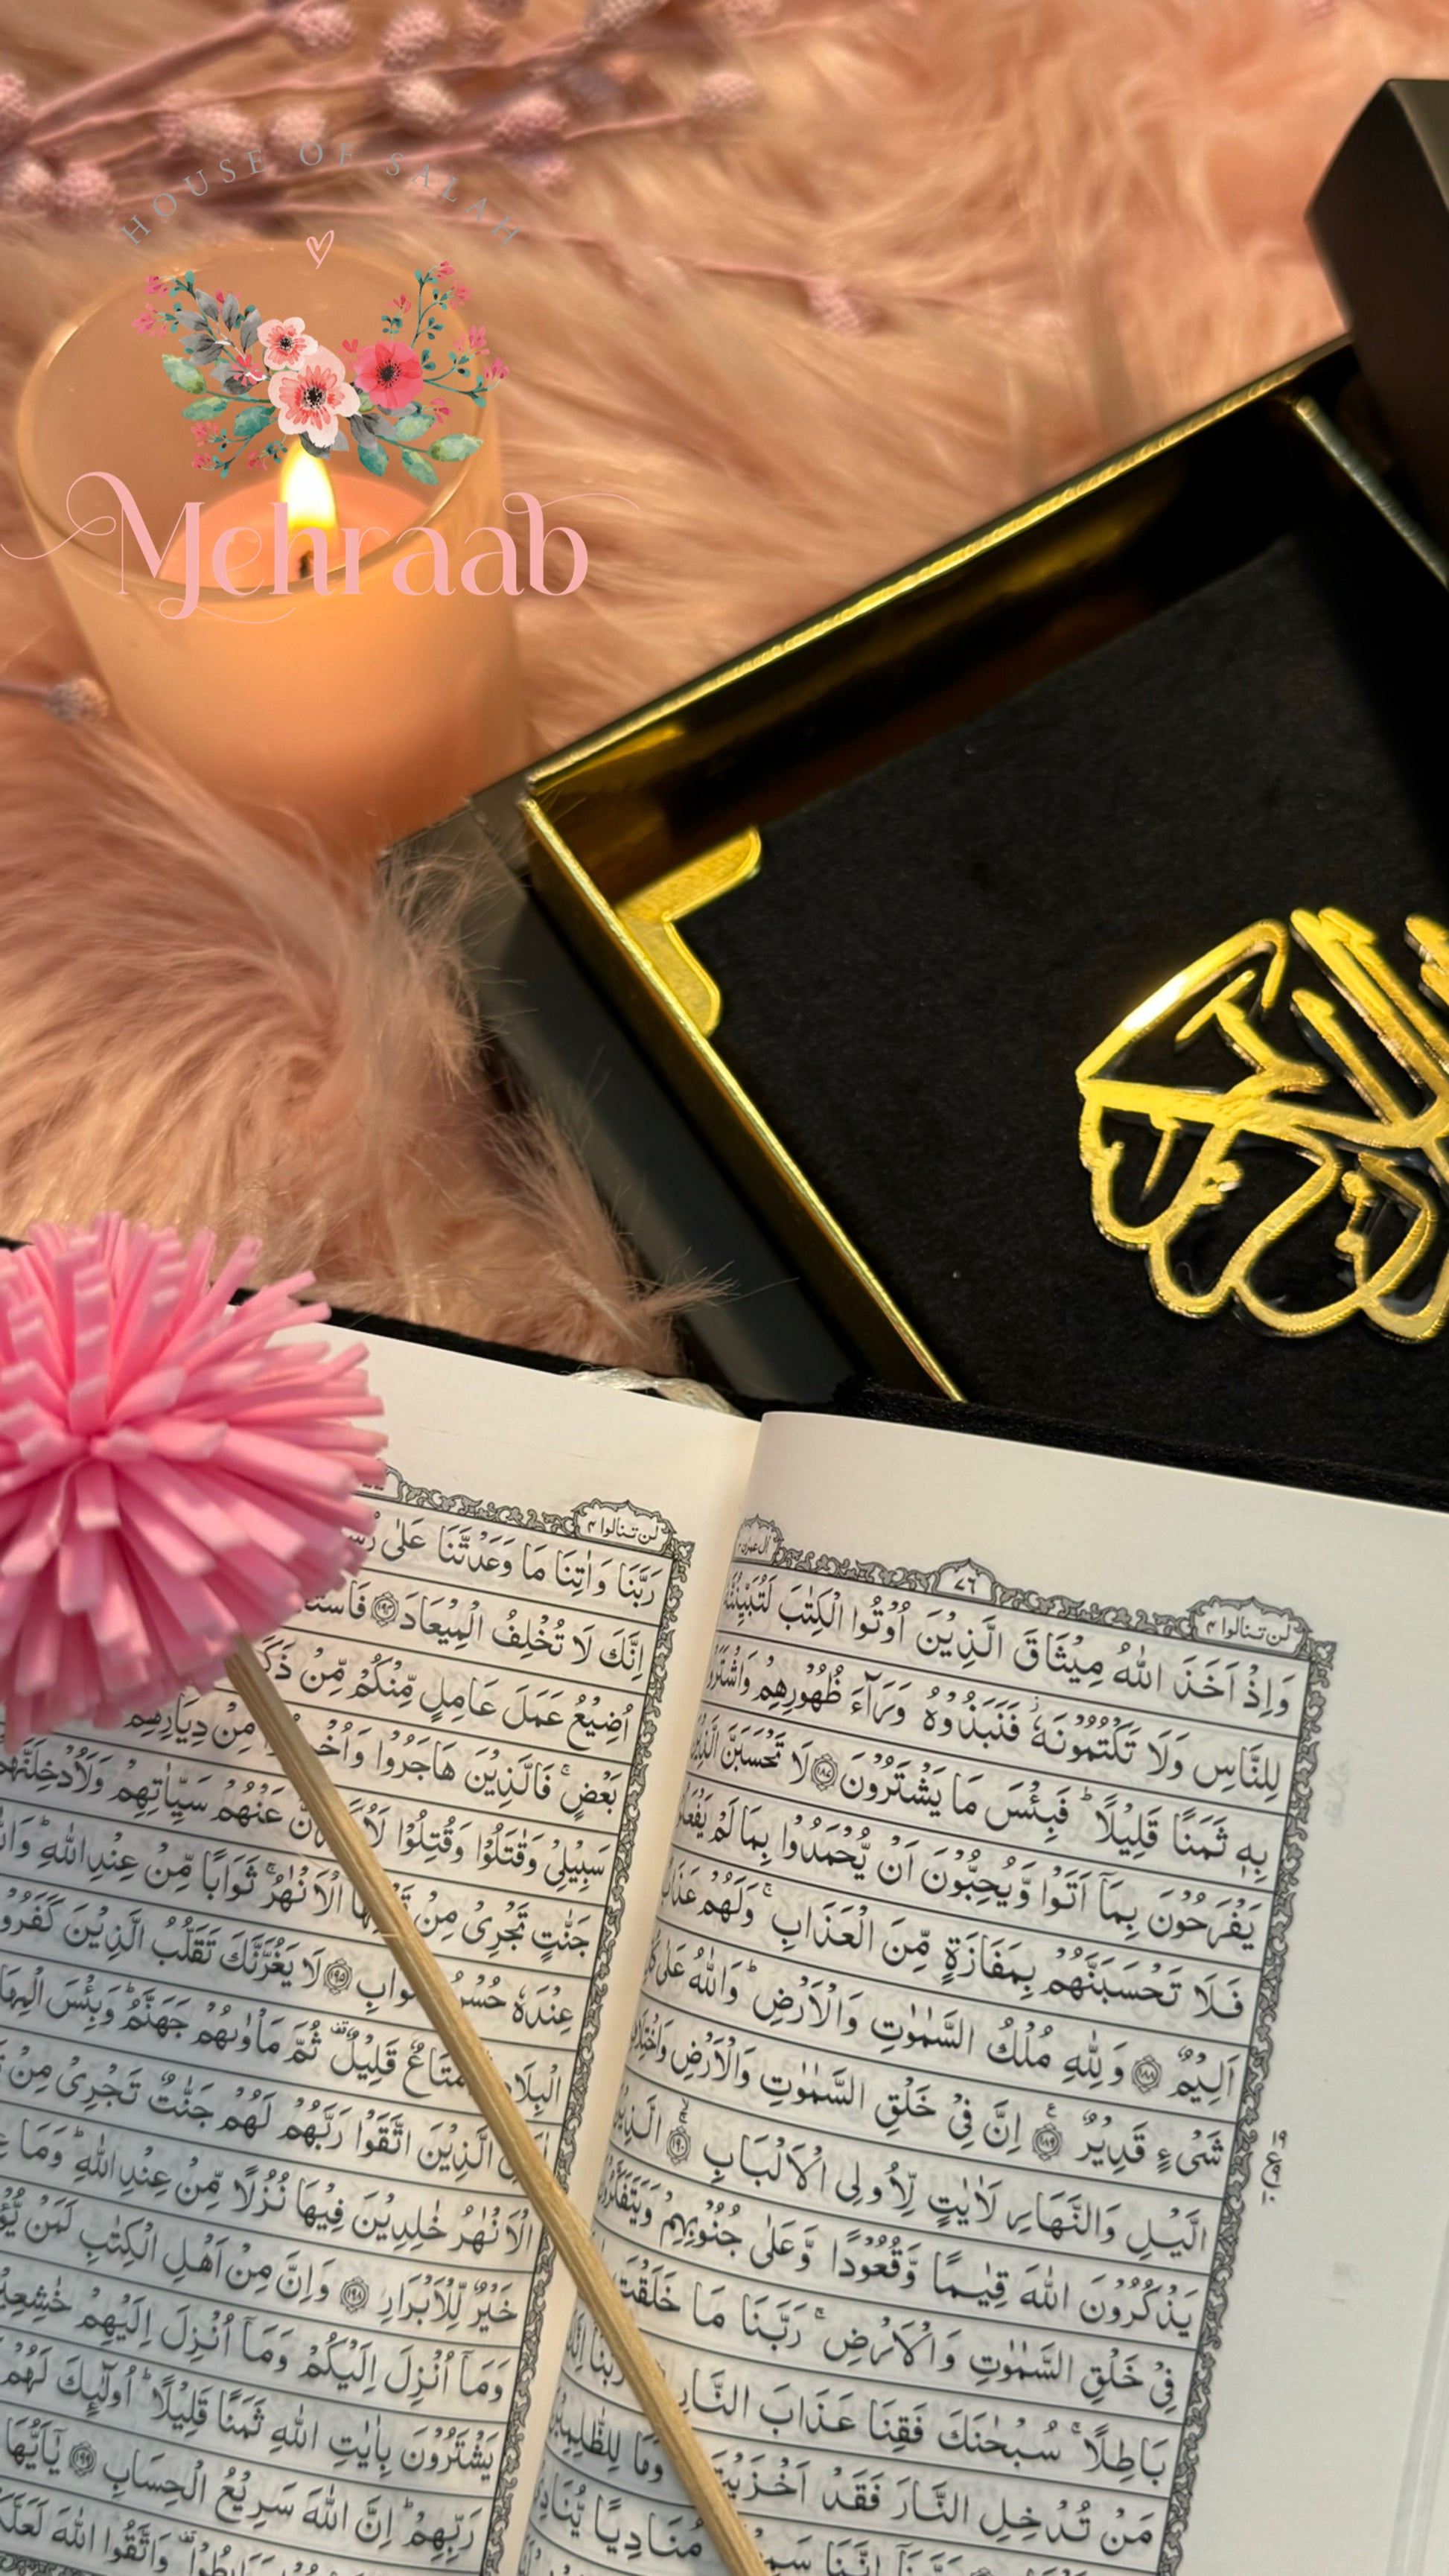 HOUSE OF SALAH
Mehraab
لن تنالوا ٤
٧٦
اٰل عمرٰن ٣
وَاِذْ اَخَذَ اللّٰهُ مِيْثَاقَ الَّذِيْنَ اُوْتُوا الْكِتٰبَ لَتُبَيِّنُنَّهٗ
لِلنَّاسِ وَلَا تَكْتُمُوْنَهٗ فَنَبَذُوْهُ وَرَآءَ ظُهُوْرِهِمْ وَاشْتَرَوْا
بِهٖ ثَمَنًا قَلِيْلًا ؕ فَبِئْسَ مَا يَشْتَرُوْنَ ۝١٨٧ لَا تَحْسَبَنَّ الَّذِيْنَ
يَفْرَحُوْنَ بِمَآ اَتَوْا وَّيُحِبُّوْنَ اَنْ يُّحْمَدُوْا بِمَا لَمْ يَفْعَلُوْا
فَلَا تَحْسَبَنَّهُمْ بِمَفَازَةٍ مِّنَ الْعَذَابِ ۚ وَلَهُمْ عَذَابٌ
اَلِيْمٌ ۝١٨٨ وَلِلّٰهِ مُلْكُ السَّمٰوٰتِ وَالْاَرْضِ ؕ وَاللّٰهُ عَلٰى كُلِّ
شَىْءٍ قَدِيْرٌ ۝١٨٩ اِنَّ فِيْ خَلْقِ السَّمٰوٰتِ وَالْاَرْضِ وَاخْتِلَافِ
الَّيْلِ وَالنَّهَارِ لَاٰيٰتٍ لِّاُولِى الْاَلْبَابِ ۝١٩٠ الَّذِيْنَ
يَذْكُرُوْنَ اللّٰهَ قِيٰمًا وَّقُعُوْدًا وَّعَلٰى جُنُوْبِهِمْ وَيَتَفَكَّرُوْنَ
فِيْ خَلْقِ السَّمٰوٰتِ وَالْاَرْضِ ۚ رَبَّنَا مَا خَلَقْتَ
بَاطِلًا ۚ سُبْحٰنَكَ فَقِنَا عَذَابَ النَّارِ رَبَّنَآ اِنَّكَ
مَنْ تُدْخِلِ النَّارَ فَقَدْ اَخْزَيْتَهٗ وَمَا لِلظّٰلِمِيْنَ
مُنَادِيًا يُّنَادِيْ
لن تنالوا ٤
رَبَّنَا وَاٰتِنَا مَا وَعَدْتَّنَا عَلٰى
اِنَّكَ لَا تُخْلِفُ الْمِيْعَادَ ۝١٩٤
اُضِيْعُ عَمَلَ عَامِلٍ مِّنْكُمْ مِّنْ ذَكَرٍ
بَعْضٍ ۚ فَالَّذِيْنَ هَاجَرُوْا وَاُخْرِجُوْا مِنْ دِيَارِهِمْ
سَبِيْلِيْ وَقٰتَلُوْا وَقُتِلُوْا لَاُكَفِّرَنَّ عَنْهُمْ سَيِّاٰتِهِمْ وَلَاُدْخِلَنَّهُمْ
جَنّٰتٍ تَجْرِيْ مِنْ تَحْتِهَا الْاَنْهٰرُ ۚ ثَوَابًا مِّنْ عِنْدِ اللّٰهِ ؕ وَاللّٰهُ
عِنْدَهٗ حُسْنُ الثَّوَابِ ۝١٩٥ لَا يَغُرَّنَّكَ تَقَلُّبُ الَّذِيْنَ كَفَرُوْا
الْبِلَادِ مَتَاعٌ قَلِيْلٌ ۟ ثُمَّ مَاْوٰىهُمْ جَهَنَّمُ ؕ وَبِئْسَ الْمِهَادُ
الَّذِيْنَ اتَّقَوْا رَبَّهُمْ لَهُمْ جَنّٰتٌ تَجْرِيْ مِنْ
الْاَنْهٰرُ خٰلِدِيْنَ فِيْهَا نُزُلًا مِّنْ عِنْدِ اللّٰهِ ؕ وَمَا
خَيْرٌ لِّلْاَبْرَارِ ۝١٩٨ وَاِنَّ مِنْ اَهْلِ الْكِتٰبِ لَمَنْ
وَمَآ اُنْزِلَ اِلَيْكُمْ وَمَآ اُنْزِلَ اِلَيْهِمْ خٰشِعِيْنَ
يَشْتَرُوْنَ بِاٰيٰتِ اللّٰهِ ثَمَنًا قَلِيْلًا ؕ اُولٰٓئِكَ لَهُمْ
رَبِّهِمْ ؕ اِنَّ اللّٰهَ سَرِيْعُ الْحِسَابِ ۝١٩٩ يٰٓاَيُّهَا
وَاتَّقُوا اللّٰهَ